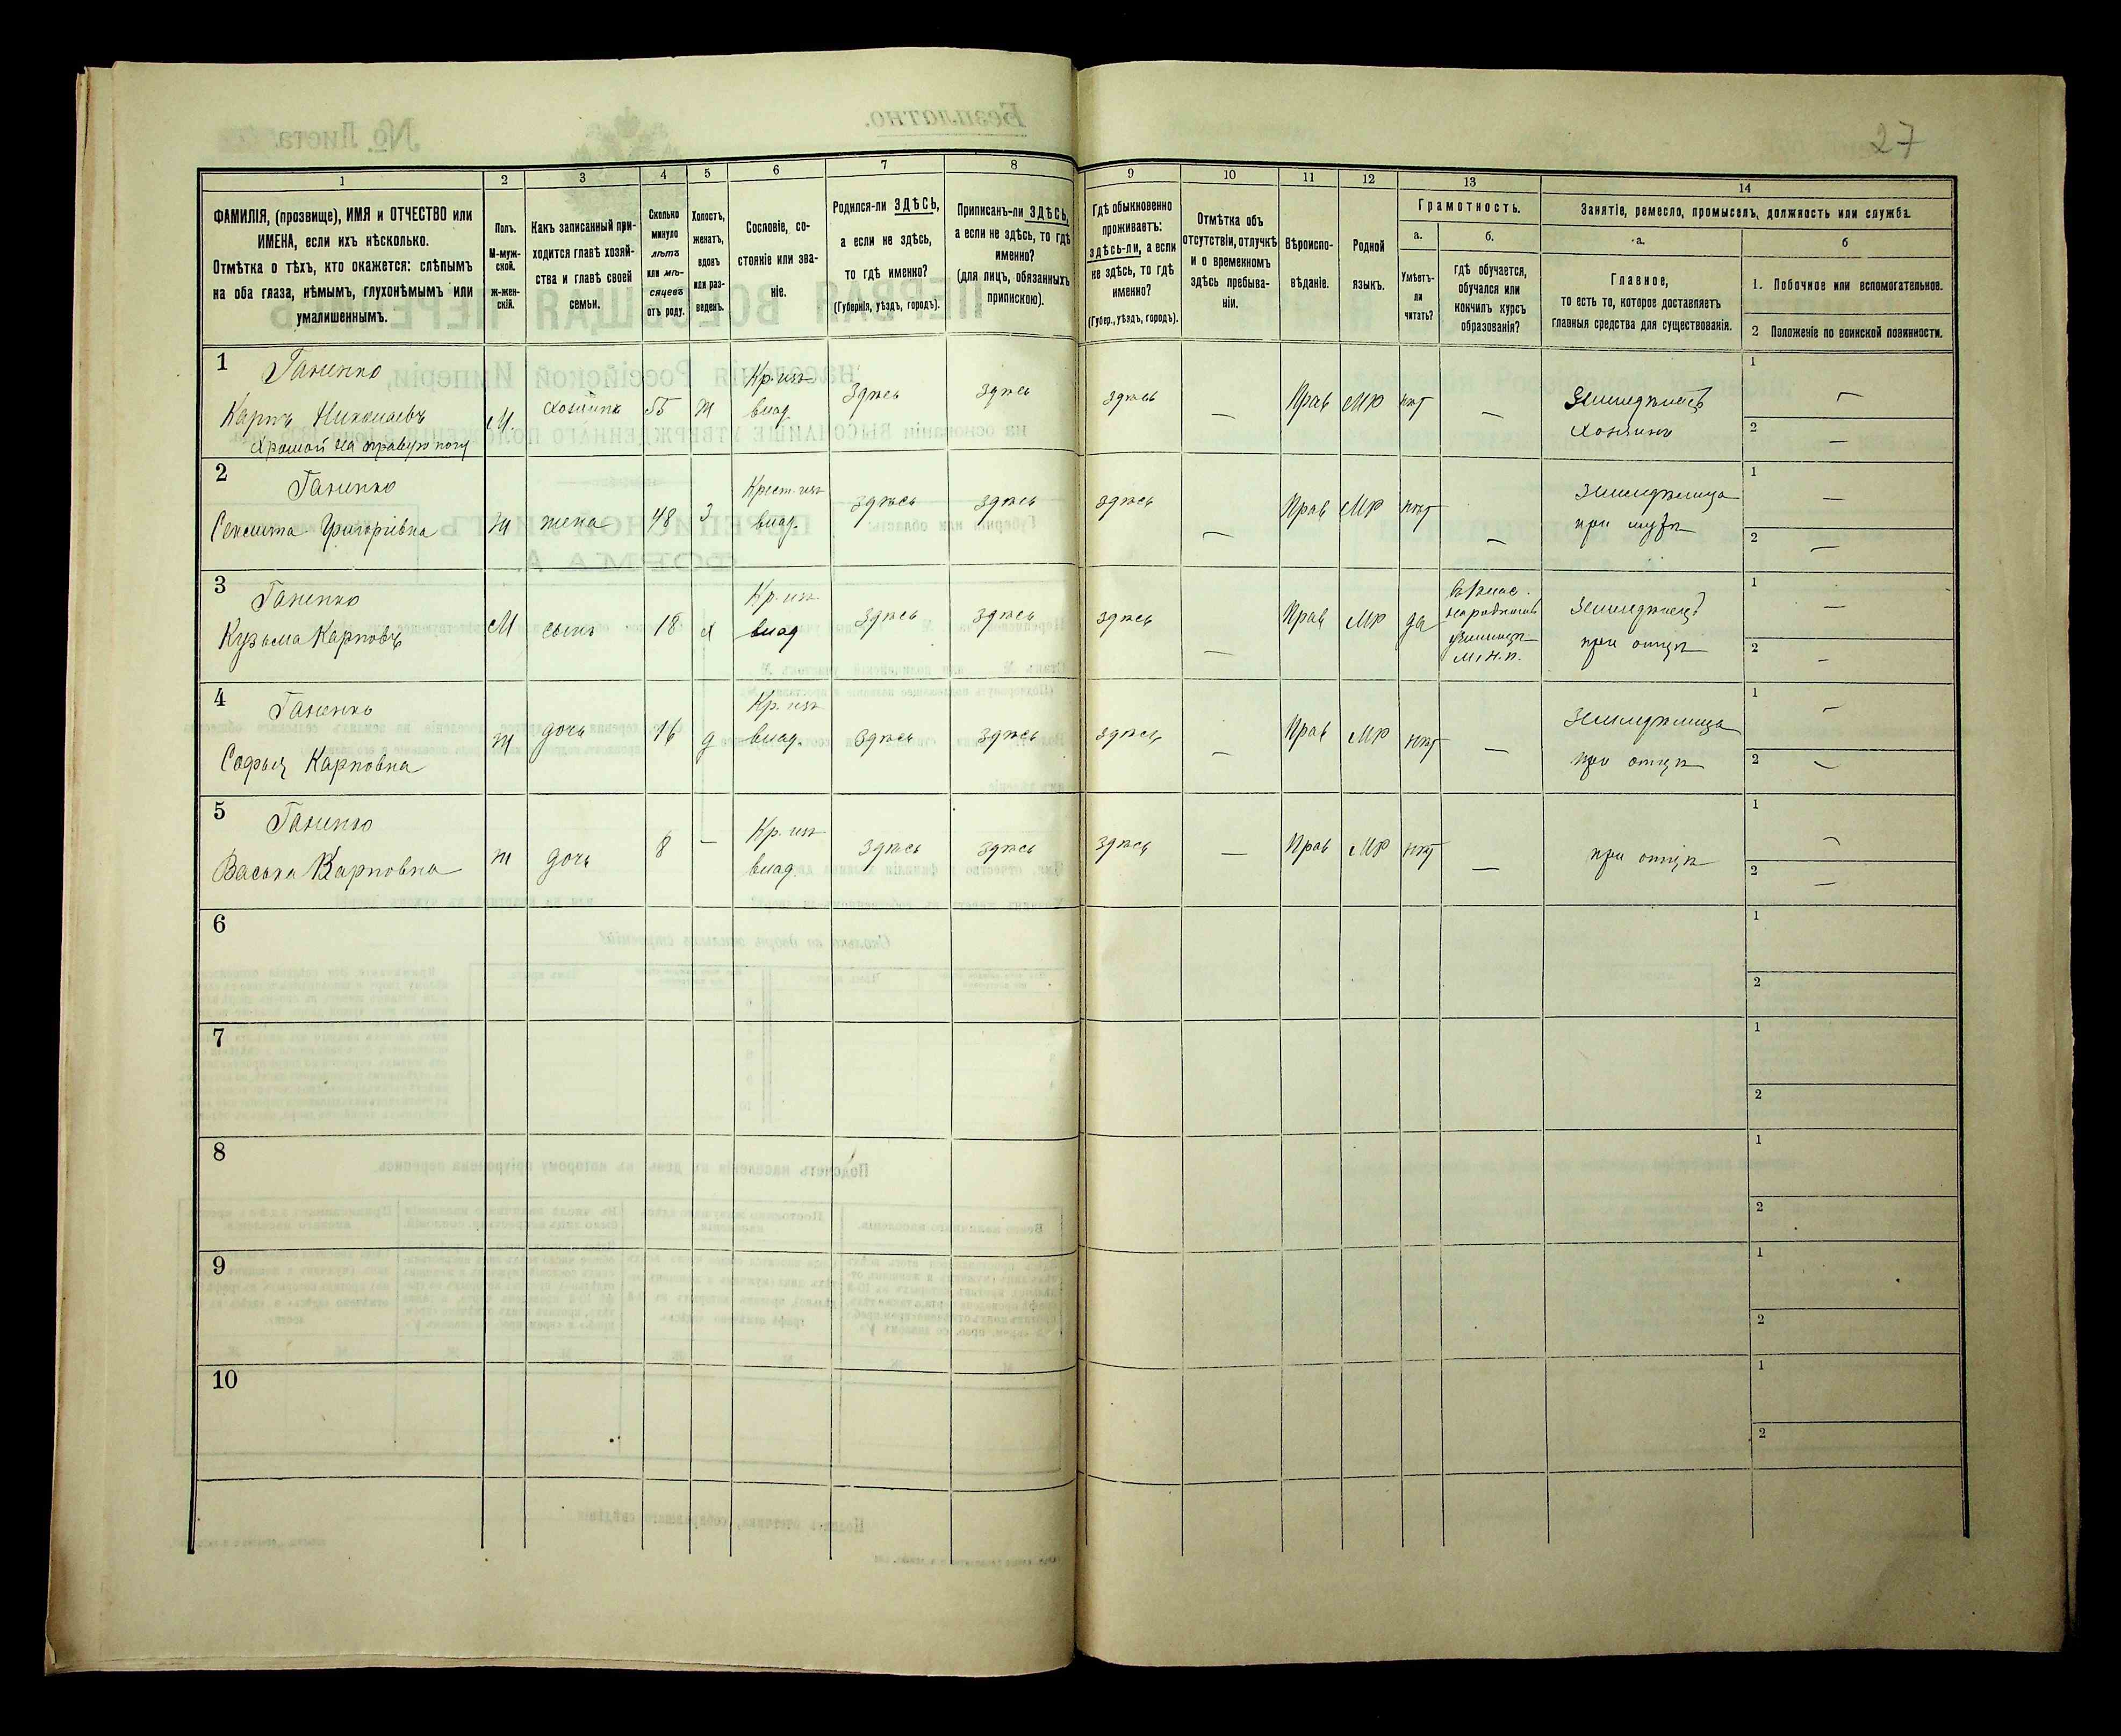 27
1
2
3
4
5
6
7
8
9
10
11
12
13
14
ФАМИЛІЯ, (прозвище), ИМЯ и ОТЧЕСТВО или
ИМЕНА, если ихъ нѣсколько.
Отмѣтка о тѣхъ, кто окажется: слѣпымъ
на оба глаза, нѣмымъ, глухонѣмымъ или
умалишеннымъ.
Полъ.
М-муж-
ской.
Ж-жен-
скій.
Какъ записанный при-
ходится главѣ хозяй-
ства и главѣ своей
семьи.
Сколько
минуло
лѣтъ
или мѣ-
сяцевъ
отъ роду.
Холостъ,
женатъ,
вдовъ
или раз-
веденъ.
Сословіе, со-
стояніе или зва-
ніе.
Родился-ли ЗДѢСЬ,
а если не здѣсь,
то гдѣ именно?
(Губернія, уѣздъ, городъ).
Приписанъ-ли ЗДѢСЬ,
а если не здѣсь, то гдѣ
именно?
(для лицъ, обязанныхъ
припискою).
Гдѣ обыкновенно
проживаетъ:
здѣсь-ли, а если
не здѣсь, то гдѣ
именно?
(Губер., уѣздъ, городъ).
Отмѣтка объ
отсутствіи, отлучкѣ
и о временномъ
здѣсь пребыва-
ніи.
Вѣроиспо-
вѣданіе.
Родной
языкъ.
Грамотность.
а.
б.
Умѣетъ-
ли
читать?
гдѣ обучается,
обучался или
кончилъ курсъ
образованія?
Занятіе, ремесло, промыселъ, должность или служба.
а.
б
Главное,
то есть то, которое доставляетъ
главныя средства для существованія.
1. Побочное или вспомогательное.
2 Положеніе по воинской повинности.
1
Ганенко
Карпъ Николаевъ
Хромой на правую ногу
М.
Хозяинъ
55
Ж
Кр. изъ
влад.
Здѣсь
здѣсь
здѣсь
—
Прав
Мр
нѣт
—
Земледѣлецъ
Хозяинъ
1
—
2
—
2
Ганенко
Григоріевна
Ж
жена
48
З
Крест. изъ
влад.
здѣсь
здѣсь
здѣсь
—
Прав
Мр
нѣт
—
земледѣлица
при мужѣ
1
—
2
—
3
Ганенко
Кузьма Карповъ
М
сынъ
18
х
Кр. изъ
влад
здѣсь
здѣсь
здѣсь
—
Прав
Мр
да
народномъ
училищѣ
М. Н. П.
земледѣлецъ
при отцѣ
1
—
2
—
4
Ганенко
Софья Карповна
ж
дочь
16
д
Кр. изъ
влад.
здѣсь
здѣсь
здѣсь
—
Прав
Мр
нѣт
—
земледѣлица
при отцѣ
1
—
2
—
5
Ганенко
Васька Карповна
ж
дочь
8
—
Кр. изъ
влад.
здѣсь
здѣсь
здѣсь
—
Прав
Мр
нѣт
—
при отцѣ
1
—
2
—
6
1
2
7
1
2
8
1
2
9
1
2
10
1
2